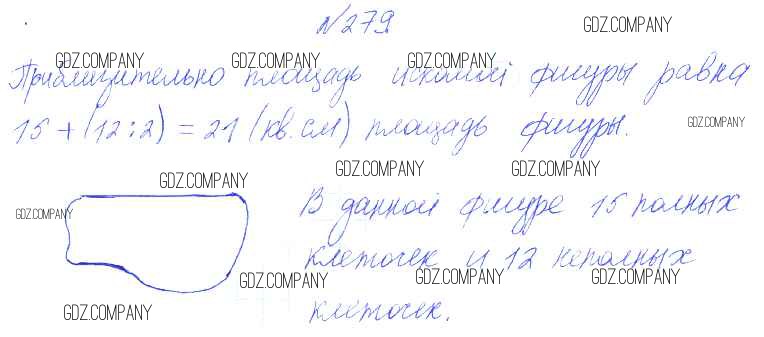 №279
GDZ.COMPANY
GDZ.COMPANY GDZ.COMPANY GDZ.COMPANY
Приблизительно площадь искомой фигуры равна
15 + (12 : 2) = 21 (кв. см) площадь фигуры.
GDZ.COMPANY
GDZ.COMPANY GDZ.COMPANY GDZ.COMPANY
GDZ.COMPANY
В данной фигуре 15 полных
клеточек и 12 неполных
GDZ.COMPANY GDZ.COMPANY GDZ.COMPANY
GDZ.COMPANY
клеточек.